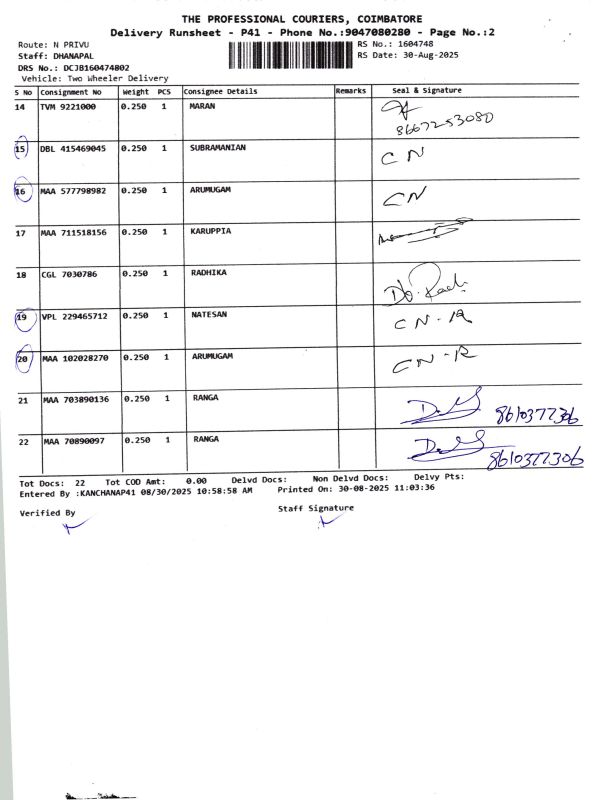 THE PROFESSIONAL COURIERS, COIMBATORE
Delivery Runsheet - P41 - Phone No.:9047080280 - Page No.:2
Route: N PRIVU RS No.: 1604748
Staff: DHANAPAL RS Date: 30-Aug-2025
DRS No.: DCJB160474802
Vehicle: Two Wheeler Delivery
S No Consignment No Weight PCS Consignee Details Remarks Seal & Signature
14 TVM 9221000 0.250 1 MARAN
8667253080
15 DBL 415469045 0.250 1 SUBRAMANIAN CN
16 MAA 577798982 0.250 1 ARUMUGAM CN
17 MAA 711518156 0.250 1 KARUPPIA
18 CGL 7030786 0.250 1 RADHIKA
19 VPL 229465712 0.250 1 NATESAN CN-R
20 MAA 102028270 0.250 1 ARUMUGAM CN-R
21 MAA 703890136 0.250 1 RANGA 8610377306
22 MAA 70890097 0.250 1 RANGA 8610377306
Tot Docs: 22 Tot COD Amt: 0.00 Delvd Docs: Non Delvd Docs: Delvy Pts:
Entered By :KANCHANAP41 08/30/2025 10:58:58 AM Printed On: 30-08-2025 11:03:36
Verified By Staff Signature